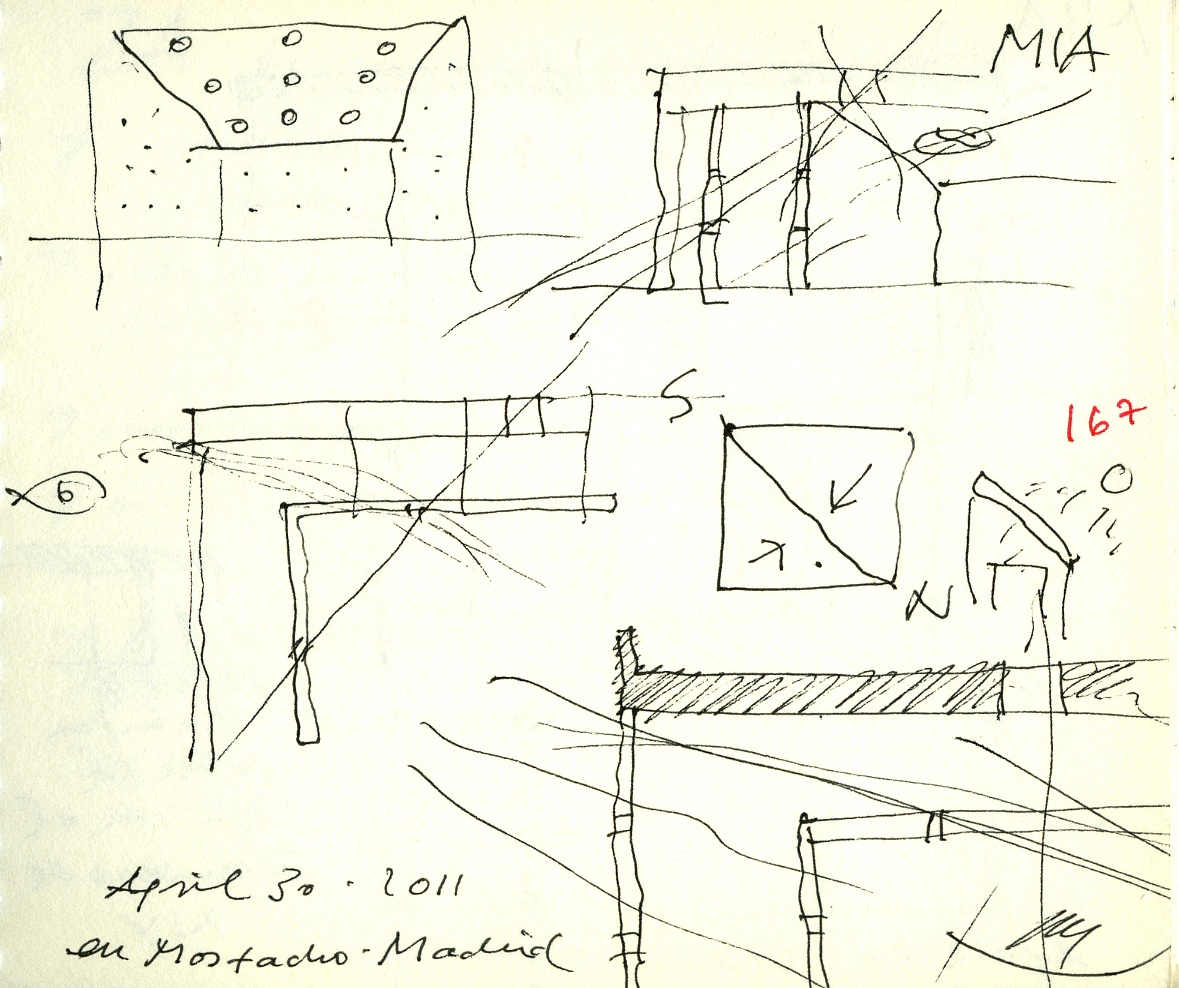 MIA
S
167
6
N
April 30 · 2011
en Mostacho - Madrid